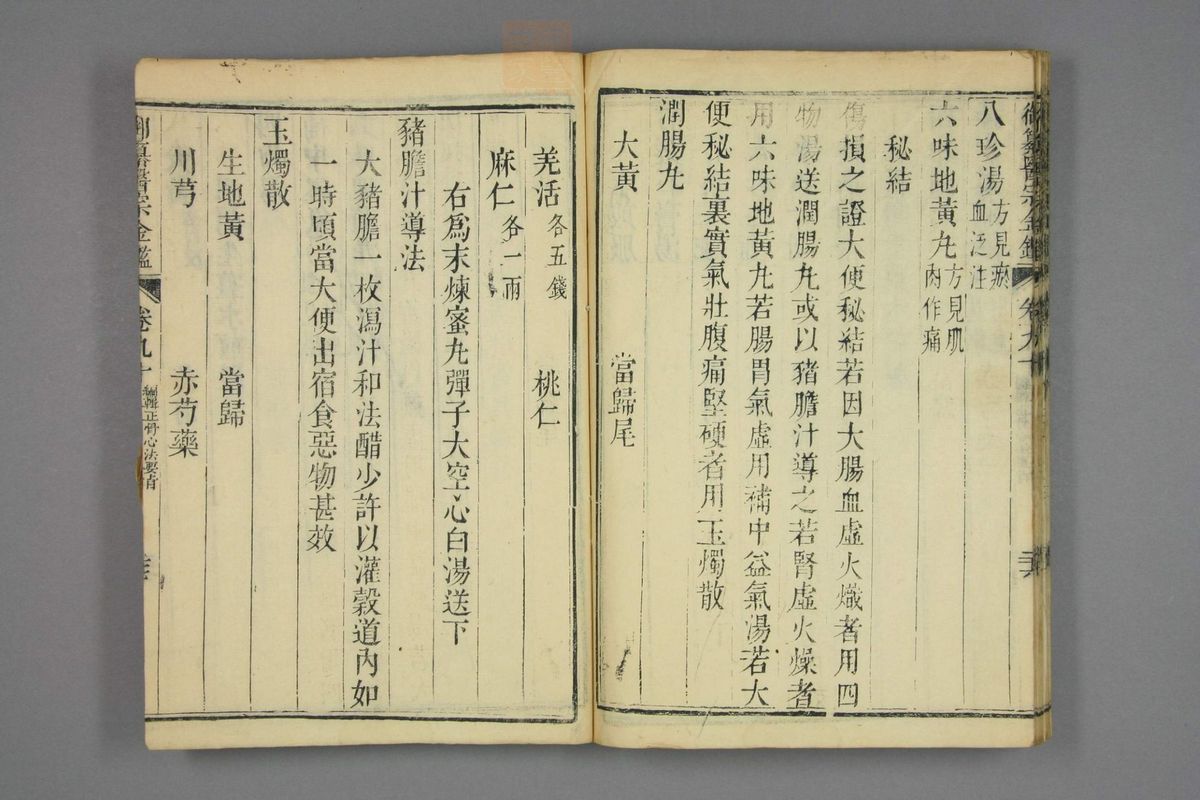 御纂醫宗金鑑 卷九十
八珍湯方見瘀血泛注
六味地黃丸方見肌肉作痛
秘結
傷損之證大便秘結若因大腸血虛火熾者用四
物湯送潤腸丸或以豬膽汁導之若腎虛火燥者
用六味地黃丸若腸胃氣虛用補中益氣湯若大
便秘結裏實氣壯腹痛堅硬者用玉燭散
潤腸丸
大黃 當歸尾
羌活各五錢 桃仁
麻仁各一兩
右爲末煉蜜丸彈子大空心白湯送下
豬膽汁導法
大豬膽一枚瀉汁和法醋少許以灌穀道內如
一時頃當大便出宿食惡物甚效
玉燭散
生地黃 當歸
川芎 赤芍藥
御纂醫宗金鑑 卷九十 編輯正骨心法要旨